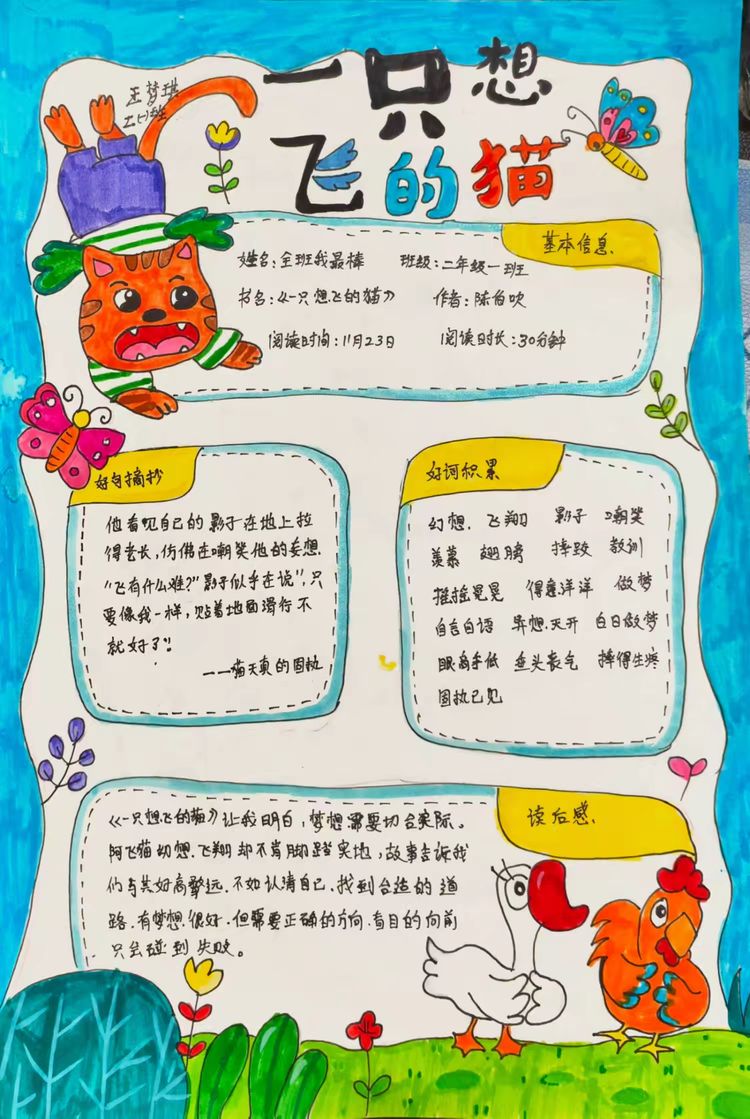 一只想
飞的猫
王梦琪
二(一)班
基本信息
姓名:全班我最棒 班级:二年级一班
书名:《一只想飞的猫》 作者:陈伯吹
阅读时间:11月23日 阅读时长:30分钟
好句摘抄
他看见自己的影子在地上拉
得老长,仿佛在嘲笑他的妄想.
“飞有什么难?”影子似乎在说”,只
要像我一样,贴着地面滑行不
就好了”!
——猫天真的固执
好词积累
幻想. 飞翔 影子 嘲笑
羡慕 翅膀 摔跤 教训
摇摇晃晃 得意洋洋 做梦
自言自语 异想.天开 白日做梦
眼高手低 垂头丧气 摔得生疼
固执己见
读后感.
《一只想飞的猫》让我明白,梦想需要切合实际。
阿飞猫幻想.飞翔却不肯脚踏实地,故事告诉我
们与其好高骛远.不如认清自己.找到合适的道
路.有梦想.很好.但需要正确的方向.盲目的向前
只会碰到失败。